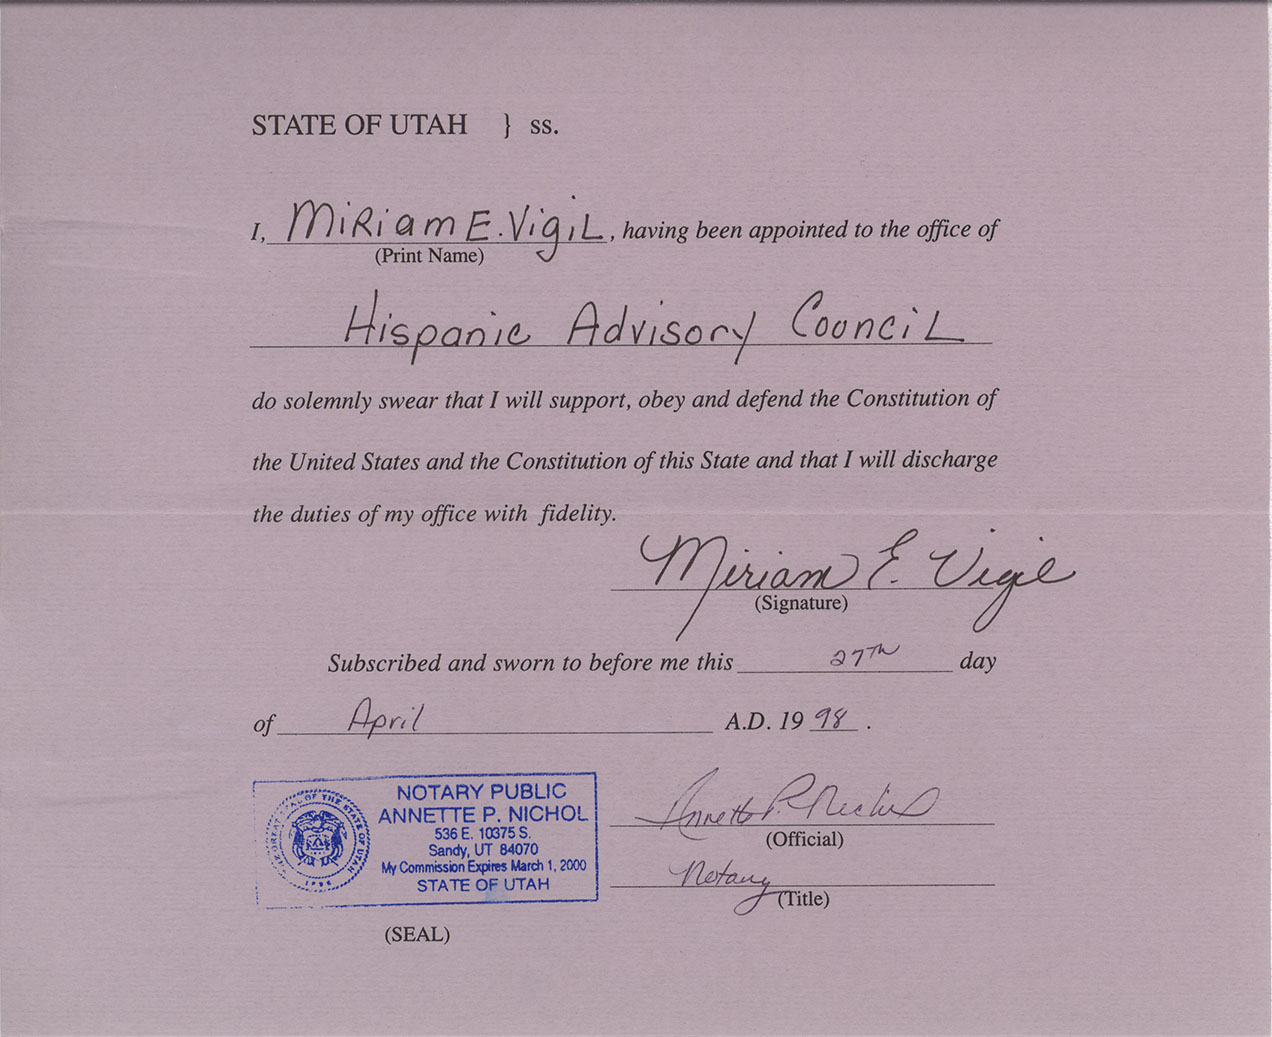 STATE OF UTAH } ss.
I, MiRiam E. VigiL, having been appointed to the office of
(Print Name)
Hispanic Advisory CounciL
do solemnly swear that I will support, obey and defend the Constitution of
the United States and the Constitution of this State and that I will discharge
the duties of my office with fidelity.
Miriam E. Vigil
(Signature)
Subscribed and sworn to before me this 27TH day
of April A.D. 1998.
THE GREAT SEAL OF THE STATE OF UTAH
1896
NOTARY PUBLIC
ANNETTE P. NICHOL
536 E. 10375 S.
Sandy, UT 84070
My Commission Expires March 1, 2000
STATE OF UTAH
(SEAL)
Annette P. Nichol
(Official)
Notary
(Title)